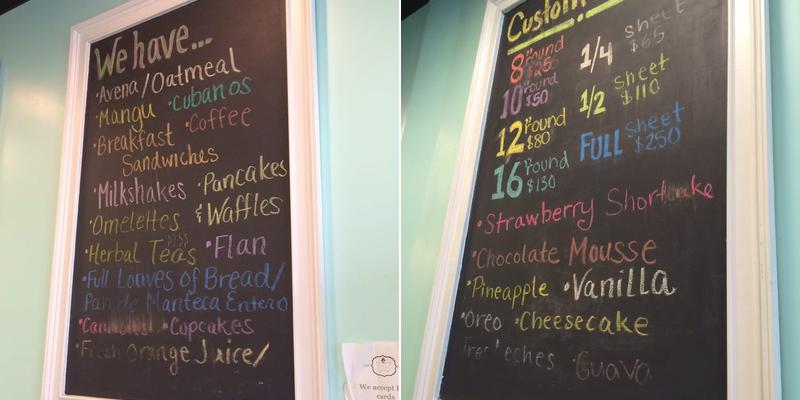 We have...
·Avena/Oatmeal
·Mangu ·Cubanos
·Breakfast ·Coffee
Sandwiches
·Milkshakes ·Pancakes
·Omelettes & Waffles
·Herbal Teas ·Flan
·Full Loaves of Bread/
Pan de Manteca Entero
·Cupcakes
·Fresh Orange Juice/
We accept
cards
Custom
8 Round $25 1/4 Sheet $65
10 Round $50 1/2 Sheet $110
12 Round $80 FULL Sheet $250
16 Round $130
·Strawberry Shortcake
·Chocolate Mousse
·Pineapple ·Vanilla
·Oreo ·Cheesecake
Tres Leches ·Guava